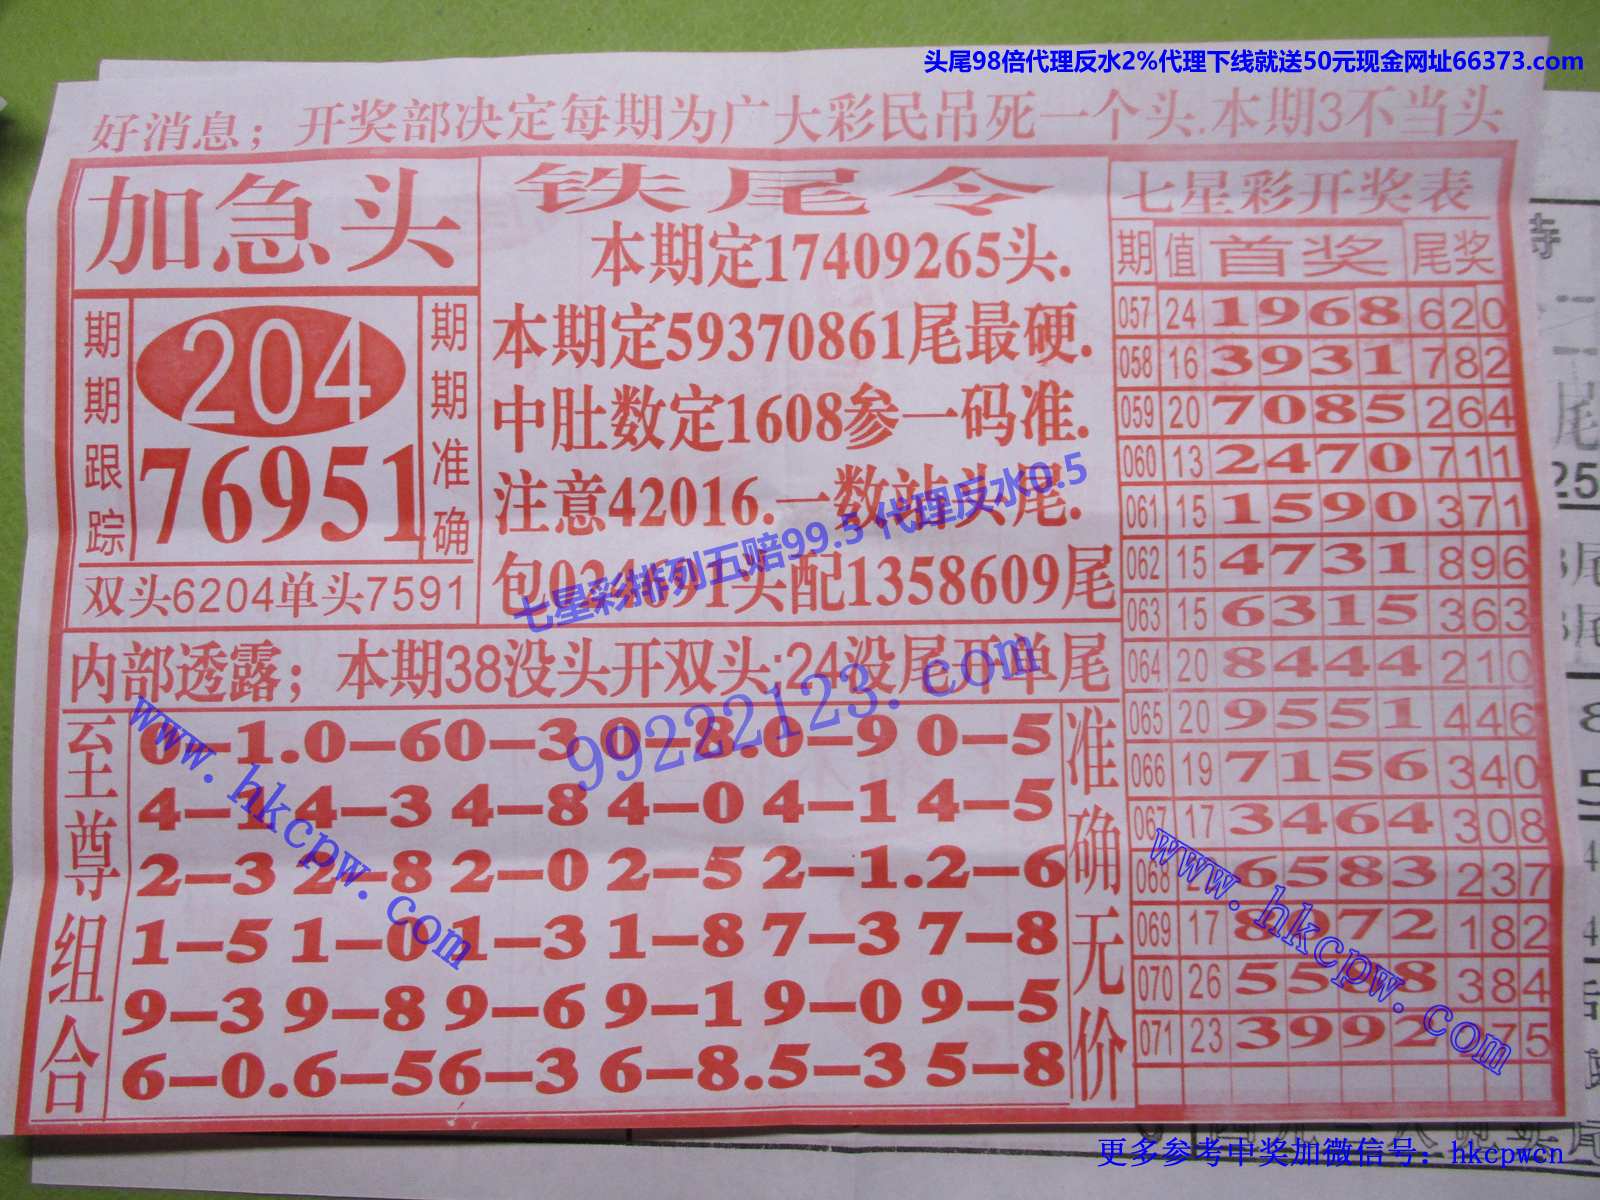 头尾98倍代理反水2%代理下线就送50元现金网址66373.com
好消息；开奖部决定每期为广大彩民吊死一个头.本期3不当头
加急头
期期跟踪
204
76951
期期准确
双头6204单头7591
铁尾令
本期定17409265头.
本期定59370861尾最硬.
中肚数定1608参一码准.
注意42016.一数站头尾.
头配1358609尾
七星彩排列五赔99.5 代理反水0.5
内部透露；本期38没头开双头;24没尾开单尾
99222123.com
至尊组合
0-1.0-60-3 0-8.0-9 0-5
4-1 4-3 4-8 4-0 4-1 4-5
2-3 2-8 2-0 2-5 2-1.2-6
1-5 1-0 1-3 1-8 7-3 7-8
9-3 9-8 9-6 9-1 9-0 9-5
6-0.6-56-3 6-8.5-3 5-8
准确无价
www.hkcpw.com
七星彩开奖表
期 值 首奖 尾奖
057 24 1968 620
058 16 3931 782
059 20 7085 264
060 13 2470 711
061 15 1590 371
062 15 4731 896
063 15 6315 363
064 20 8444 210
065 20 9551 446
066 19 7156 340
067 17 3464 308
068 6583 237
069 17 8 72 182
070 26 55 8 384
071 23 3992 75
www.hkcpw.com
更多参考中奖加微信号：hkcpwcn